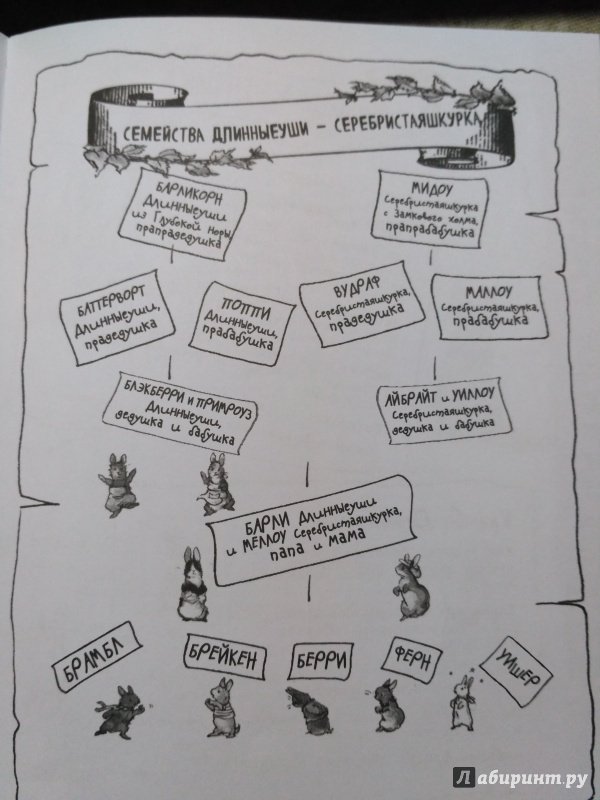 СЕМЕЙСТВА ДЛИННЫЕУШИ – СЕРЕБРИСТАЯШКУРКА
БАРЛИКОРН
Длинныеуши
из Глубокой норы,
прапрадедушка
МИДОУ
Серебристаяшкурка
с Замкового холма,
прапрабабушка
БАТТЕРВОРТ
Длинныеуши,
прадедушка
ПОППИ
Длинныеуши,
прабабушка
ВУДРАФ
Серебристаяшкурка,
прадедушка
МАЛЛОУ
Серебристаяшкурка,
прабабушка
БЛЭКБЕРРИ и ПРИМРОУЗ
Длинныеуши,
дедушка и бабушка
АЙБРАЙТ и УИЛЛОУ
Серебристаяшкурка,
дедушка и бабушка
БАРЛИ Длинныеуши
и МЕЛЛОУ Серебристаяшкурка,
папа и мама
БРАМБЛ
БРЕЙКЕН
БЕРРИ
ФЕРН
УИШЕР
Лабиринт.ру